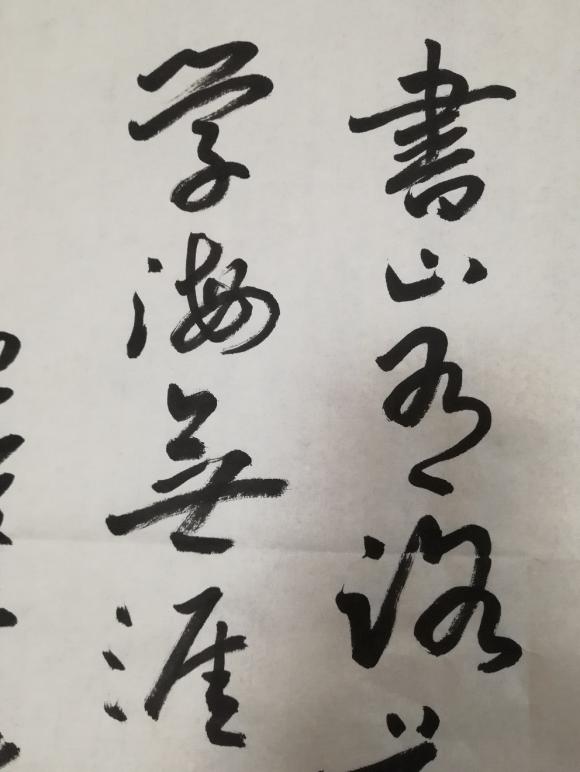 書山有路
学海無涯